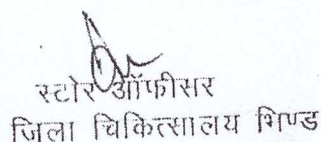 स्टोर ऑफीसर
जिला चिकित्सालय भिण्ड